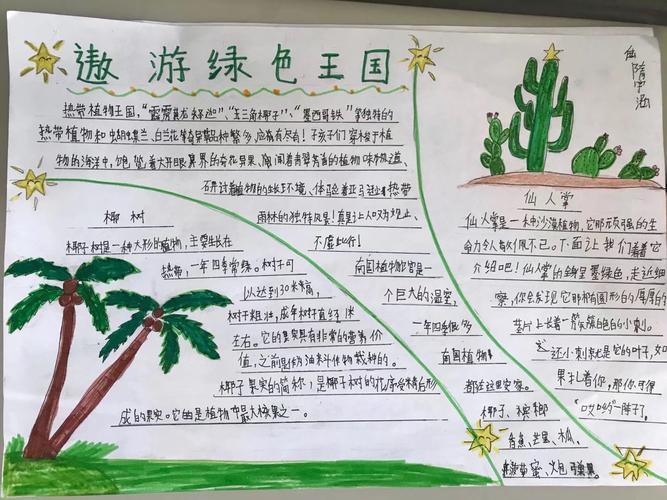 遨游绿色王国
热带植物王国,“霹雳”“三角椰子”、“墨西哥铁”等独特的
热带植物和蝴蝶兰、白兰花等奇异品种繁多,应有尽有!孩子们穿梭于植
物的海洋中,饱览着大开眼界的奇花异果、闻着着
植物的生长环境、体验着亚马逊热带
雨林的独特风景!真是让人叹为观止、
不虚此行!
椰树
椰子树是一种大形的植物,主要生长在
热带,一年四季常绿。树干可
以达到30米来高,
树干粗壮,成年树干直径1米
左右。它的果实具有非常的营养价
值,之前是奶油来斗体物栽种的。
椰子果实的简称,是椰子树的花序受精后形
成的果实。它的是植物中最大核果之一。
南国植物馆是一
个巨大的温室,
一年四季很多
南国植物
都在这里安家。
椰子、槟榔
香蕉、芒果、木瓜、
隋宇涵
仙人掌
仙人掌是一种沙漠植物,它那顽强的生
命力令人每次佩不已。下面让我们看看它
介绍吧!仙人掌的全身呈墨绿色,走近细
察,你会发现它那椭圆形的厚厚的
茎片上长着一簇簇白色的小刺。
这还小刺就是它的叶子,如
果扎着你,那你可得
“哎哟”一阵了。